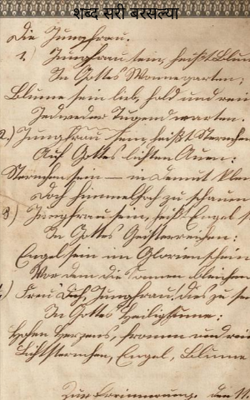 शब्द सरी बरसल्या
Die Jungfrau.
1.) Jungfrau sein, heißt Blum
In Gottes Wonnegarten.
Blume sein lieb, hold und rein
Jedweder Tugend warten.
2.) Jungfrau sein, heißt Sternchen
Auf Gottes lichten Auen:
Sternchen sein — in Demut klein
Doch himmelhoch zu schauen
3) Jungfrau sein, heißt Engel
In Gottes Geisterreichen:
Engel sein im Glorienschein
Vor dem die Sonnen bleichen
Freu Dich, Jungfrau, dies zu se
In Gottes Heiligtume:
Herzens, fromm und rein
Lichtsternchen, Engel, Blume
Zur Erinnerung, den